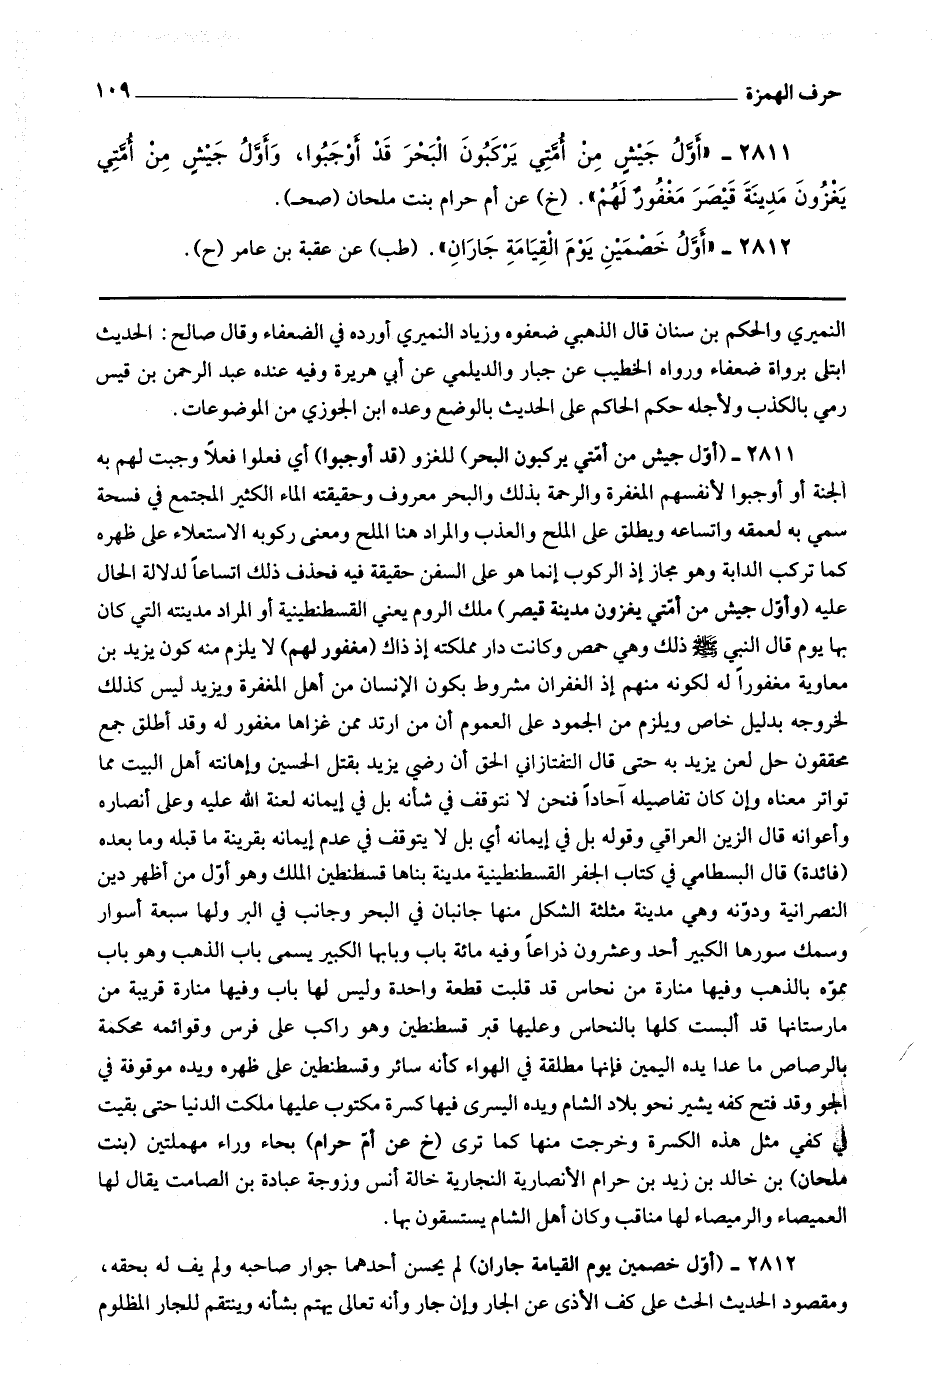 حرف الهمزة ١٠٩
٢٨١١ ـ «أَوَّلُ جَيْشٍ مِنْ أُمَّتِي يَرْكَبُونَ الْبَحْرَ قَدْ أَوْجَبُوا، وَأَوَّلُ جَيْشٍ مِنْ أُمَّتِي
يَغْزُونَ مَدِينَةَ قَيْصَرَ مَغْفُورٌ لَهُمْ». (خ) عن أم حرام بنت ملحان (صحـ).
٢٨١٢ ـ «أَوَّلُ خَصْمَيْنِ يَوْمَ الْقِيَامَةِ جَارَانِ». (طب) عن عقبة بن عامر (ح).
النميري والحكم بن سنان قال الذهبي ضعفوه وزياد النميري أورده في الضعفاء وقال صالح: الحديث
ابتلى برواة ضعفاء ورواه الخطيب عن جبار والديلمي عن أبي هريرة وفيه عنده عبد الرحمن بن قيس
رمي بالكذب ولأجله حكم الحاكم على الحديث بالوضع وعده ابن الجوزي من الموضوعات.
٢٨١١ ـ (أوّل جيش من أمّتي يركبون البحر) للغزو (قد أوجبوا) أي فعلوا فعلاً وجبت لهم به
الجنة أو أوجبوا لأنفسهم المغفرة والرحمة بذلك والبحر معروف وحقيقته الماء الكثير المجتمع في فسحة
سمي به لعمقه واتساعه ويطلق على الملح والعذب والمراد هنا الملح ومعنى ركوبه الاستعلاء على ظهره
كما تركب الدابة وهو مجاز إذ الركوب إنما هو على السفن حقيقة فيه فحذف ذلك اتساعاً لدلالة الحال
عليه (وأوّل جيش من أمّتي يغزون مدينة قيصر) ملك الروم يعني القسطنطينية أو المراد مدينته التي كان
بها يوم قال النبي ﷺ ذلك وهي حمص وكانت دار مملكته إذ ذاك (مغفور لهم) لا يلزم منه كون يزيد بن
معاوية مغفوراً له لكونه منهم إذ الغفران مشروط بكون الإنسان من أهل المغفرة ويزيد ليس كذلك
لخروجه بدليل خاص ويلزم من الجمود على العموم أن من ارتد ممن غزاها مغفور له وقد أطلق جمع
محققون حل لعن يزيد به حتى قال التفتازاني الحق أن رضي يزيد بقتل الحسين وإهانته أهل البيت مما
تواتر معناه وإن كان تفاصيله آحاداً فنحن لا نتوقف في شأنه بل في إيمانه لعنة الله عليه وعلى أنصاره
وأعوانه قال الزين العراقي وقوله بل في إيمانه أي بل لا يتوقف في عدم إيمانه بقرينة ما قبله وما بعده
(فائدة) قال البسطامي في كتاب الجفر القسطنطينية مدينة بناها قسطنطين الملك وهو أوّل من أظهر دين
النصرانية ودوّنه وهي مدينة مثلثة الشكل منها جانبان في البحر وجانب في البر ولها سبعة أسوار
وسمك سورها الكبير أحد وعشرون ذراعاً وفيه مائة باب وبابها الكبير يسمى باب الذهب وهو باب
مموّه بالذهب وفيها منارة من نحاس قد قلبت قطعة واحدة وليس لها باب وفيها منارة قريبة من
مارستانها قد ألبست كلها بالنحاس وعليها قبر قسطنطين وهو راكب على فرس وقوائمه محكمة
بالرصاص ما عدا يده اليمين فإنها مطلقة في الهواء كأنه سائر وقسطنطين على ظهره ويده موقوفة في
الجو وقد فتح كفه يشير نحو بلاد الشام ويده اليسرى فيها كسرة مكتوب عليها ملكت الدنيا حتى بقيت
في كفي مثل هذه الكسرة وخرجت منها كما ترى (خ عن أمّ حرام) بحاء وراء مهملتين (بنت
ملحان) بن خالد بن زيد بن حرام الأنصارية النجارية خالة أنس وزوجة عبادة بن الصامت يقال لها
العميصاء والرميصاء لها مناقب وكان أهل الشام يستسقون بها.
٢٨١٢ ـ (أوّل خصمين يوم القيامة جاران) لم يحسن أحدهما جوار صاحبه ولم يف له بحقه،
ومقصود الحديث الحث على كف الأذى عن الجار وإن جار وأنه تعالى يهتم بشأنه وينتقم للجار المظلوم